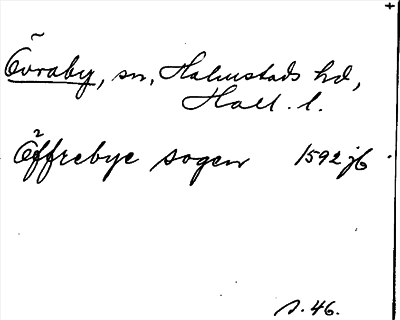 Övraby, sn, Halmstads hd,
Hall. l.
Öffrebye sogen 1592 jb
s. 46.